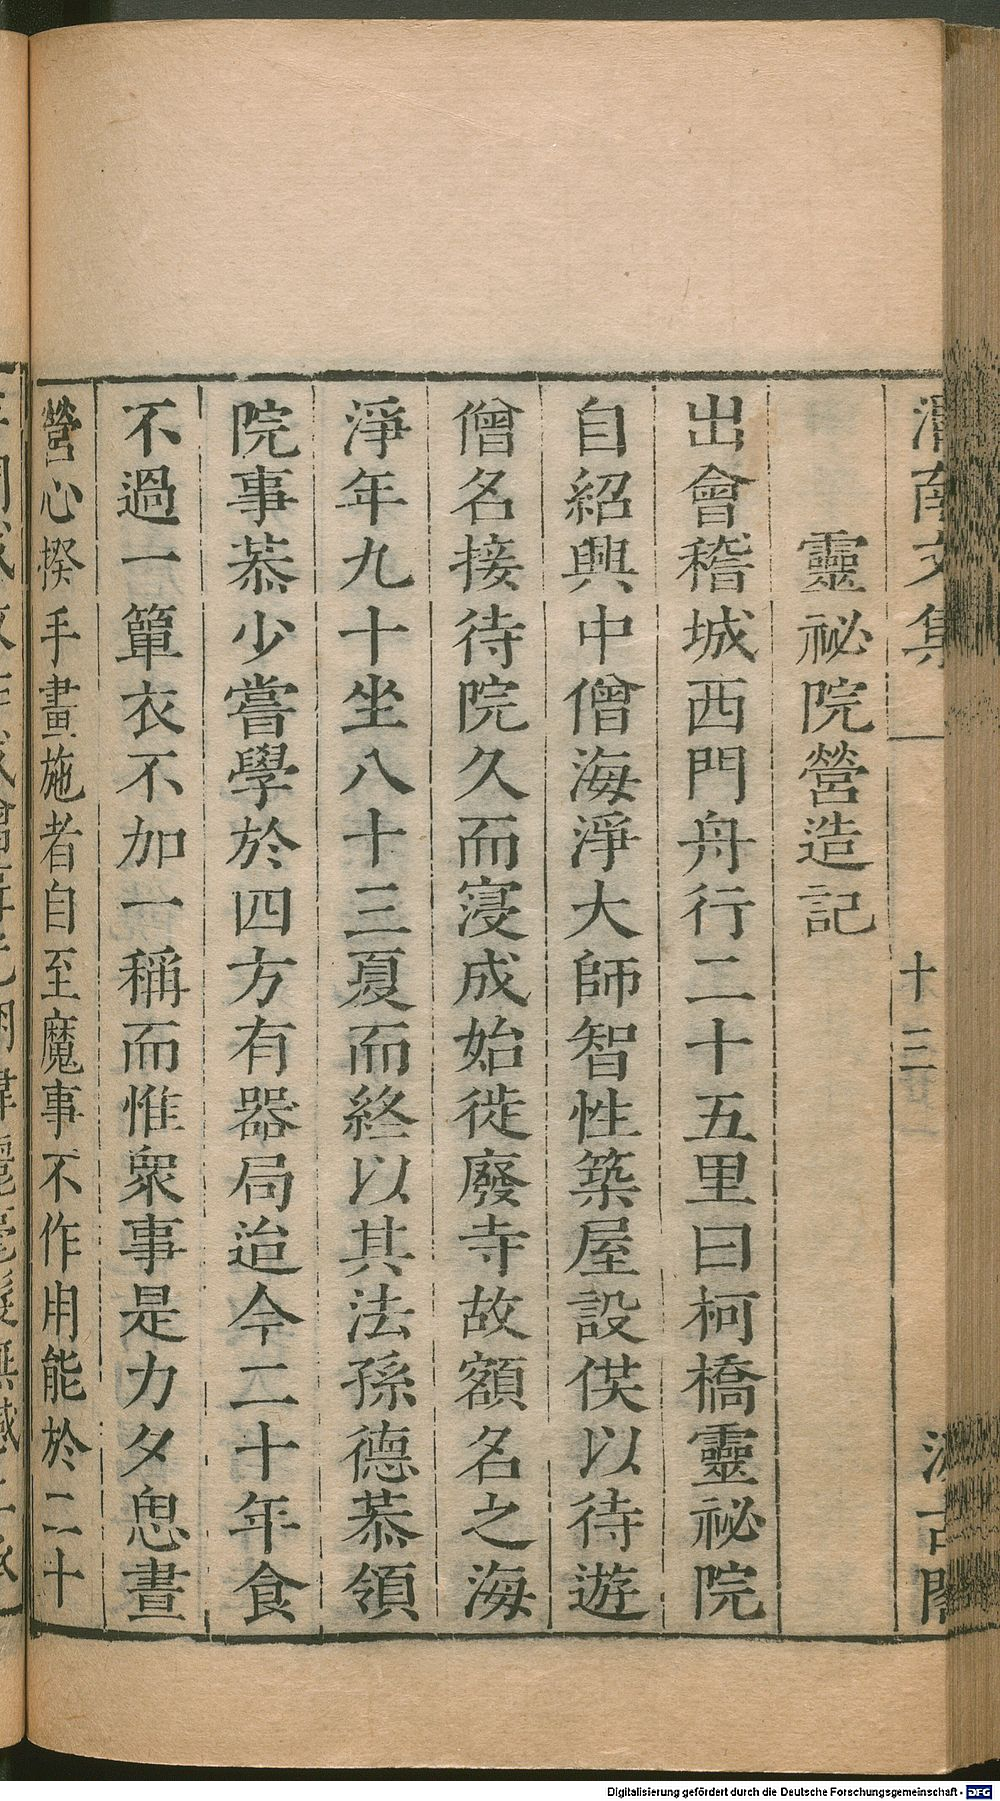 靈祕院營造記
出會稽城西門舟行二十五里曰柯橋靈祕院
自紹興中僧海淨大師智性築屋設供以待遊
僧名接待院久而寖成始徙廢寺故額名之海
淨年九十坐八十三夏而終以其法孫德恭領
院事恭少嘗學於四方有器局迨今二十年食
不過一簞衣不加一稱而惟衆事是力夕思晝
營心揆手畫施者自至魔事不作用能於二十
文集
十三
Digitalisierung gefördert durch die Deutsche Forschungsgemeinschaft - DFG